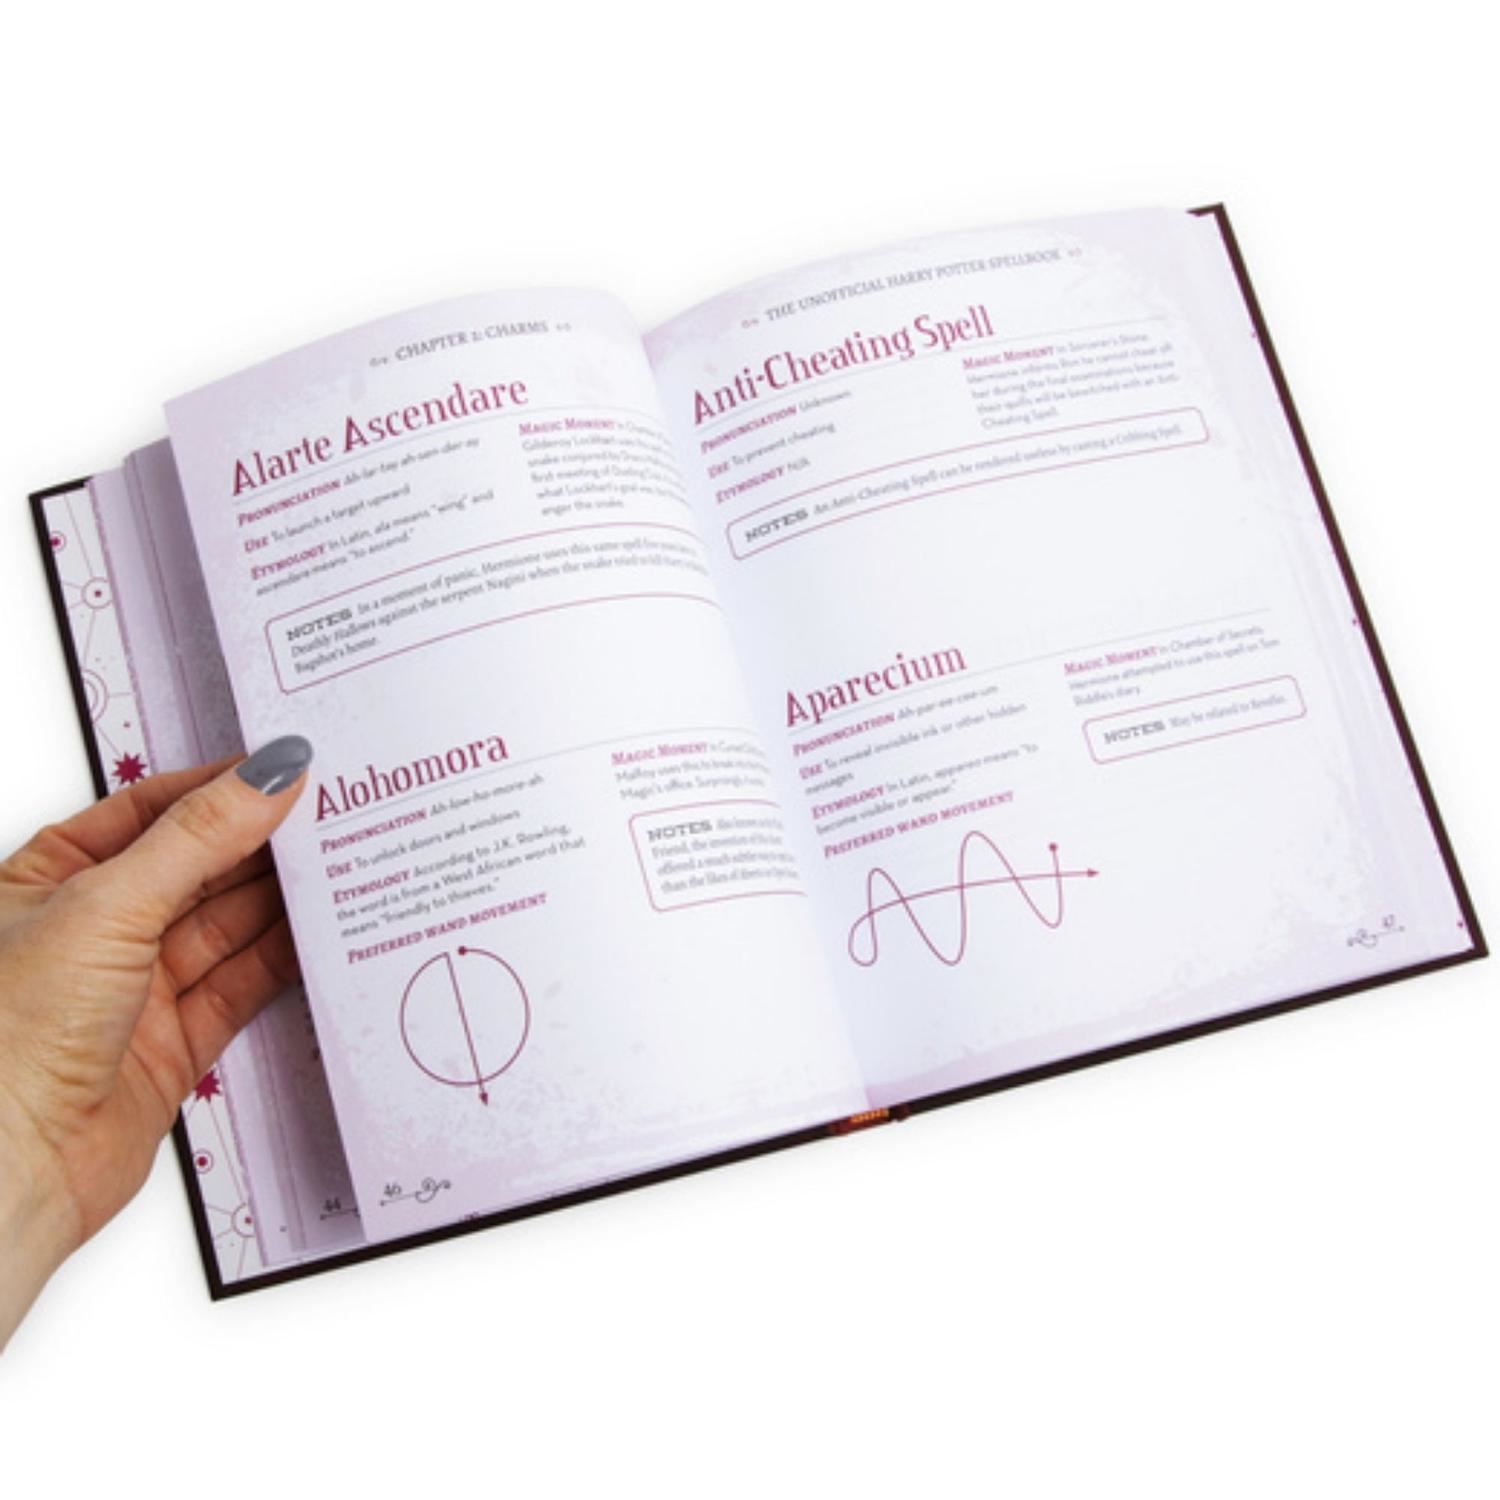 CHAPTER 2: CHARMS
Alarte Ascendare
PRONUNCIATION Ah-lar-tay ah-sen-der-ay
USE To launch a target upward
ETYMOLOGY In Latin, ala means "wing" and
ascendare means "to ascend."
MAGIC MOMENT In Chamber of
Gilderoy Lockhart uses this
snake conjured by
first meeting of Dueling Club
what Lockhart's goal was,
anger the snake.
NOTES In a moment of panic, Hermione uses this same spell
Deathly Hallows against the serpent Nagini when the snake tried to kill
Bagshot's home.
Alohomora
PRONUNCIATION Ah-low-ho-more-ah
USE To unlock doors and windows
ETYMOLOGY According to J.K. Rowling,
the word is from a West African word that
means "friendly to thieves."
PREFERRED WAND MOVEMENT
MAGIC MOMENT In
Malfoy uses this to break into
Magic's office. Surprisingly,
NOTES Also known as
Friend, the invention of the
offered a much subtler way
than the likes of
44
46
THE UNOFFICIAL HARRY POTTER SPELLBOOK
Anti-Cheating Spell
PRONUNCIATION Unknown
USE To prevent cheating
ETYMOLOGY N/A
MAGIC MOMENT In Sorcerer's Stone,
Hermione informs Ron he cannot cheat off
her during the final examinations because
their quills will be bewitched with an Anti-
Cheating Spell.
NOTES An Anti-Cheating Spell can be rendered useless by casting a Cribbing Spell.
Aparecium
PRONUNCIATION Ah-par-ee-cee-um
USE To reveal invisible ink or other hidden
messages
ETYMOLOGY In Latin, appareo means "to
become visible or appear."
PREFERRED WAND MOVEMENT
MAGIC MOMENT In Chamber of Secrets,
Hermione attempted to use this spell on Tom
Riddle's diary.
NOTES May be related to Revelio.
47